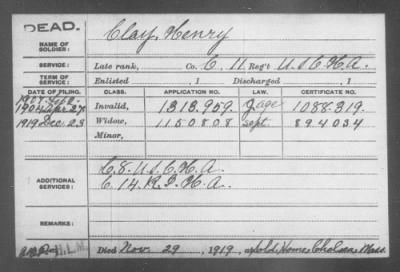 DEAD.
NAME OF SOLDIER: Clay, Henry
SERVICE: Late rank, Co. C 11 Reg't U.S.C.H.A.
TERM OF SERVICE: Enlisted , 1 Discharged , 1
DATE OF FILING. CLASS. APPLICATION NO. LAW. CERTIFICATE NO.
1904 Apr 27 Invalid, 1313.959. age 1088.319.
1919 Dec 23 Widow, 1150808 Sept. 894034
Minor,
ADDITIONAL SERVICES: C. 8. U.S.C.H.A.
C 14. R.I. H.A.
REMARKS:
Died Nov. 29, 1919, at Sold. Home, Chelsea, Mass.